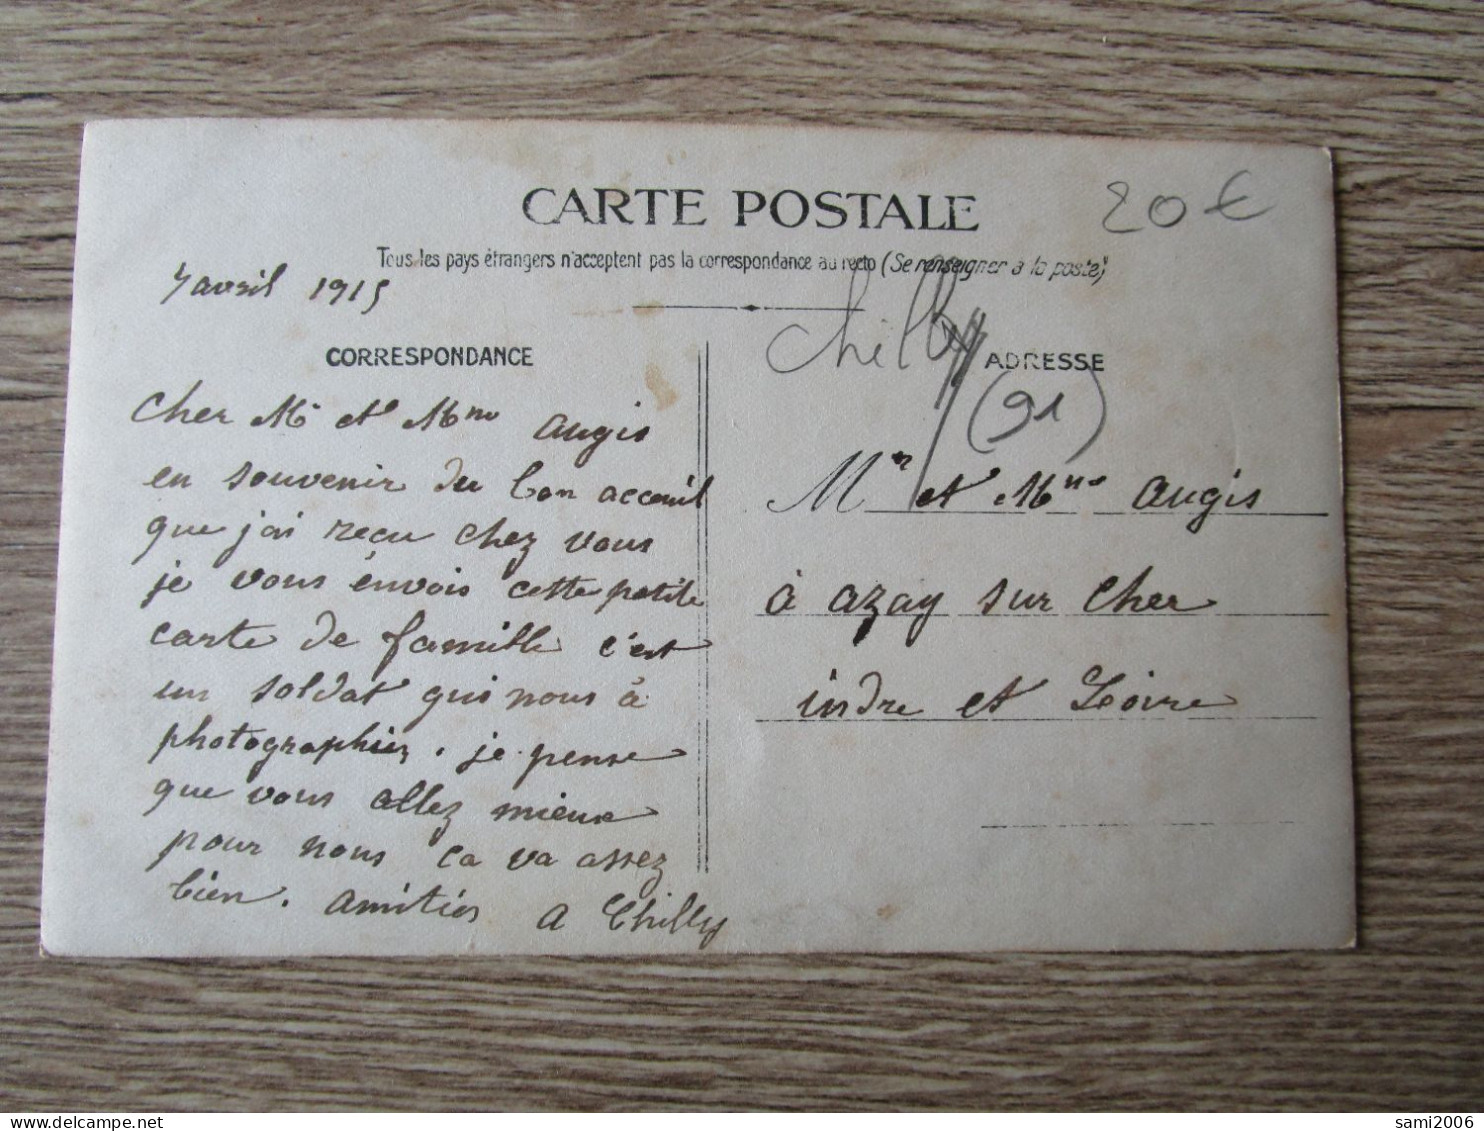 CARTE POSTALE
20 €
Tous les pays étrangers n'acceptent pas la correspondance au recto (Se renseigner à la poste)
7 avril 1915
Chilly
CORRESPONDANCE
ADRESSE
(91)
Cher Mr et Mme augis
en souvenir du bon acceuil
que j'ai reçu chez vous
je vous énvois cette petite
carte de famille c'est
un soldat qui nous à
photographiez. je pense
que vous allez mieux
pour nous ca va assez
bien. amitiés A Chilly
Mr et Mme augis
à azay sur cher
indre et Loire
sami2006